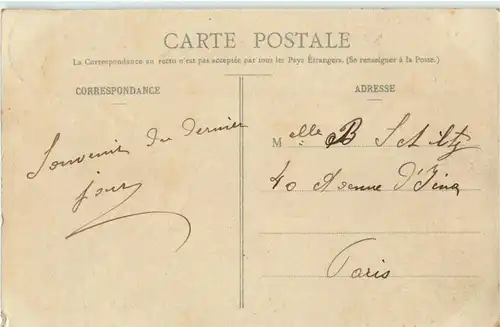 CARTE POSTALE
La Correspondance au recto n'est pas acceptée par tous les Pays Étrangers. (Se renseigner à la Poste.)
CORRESPONDANCE
Souvenir du dernier
jour
ADRESSE
Melle B Schiltz
40 Avenue d'Iéna
Paris